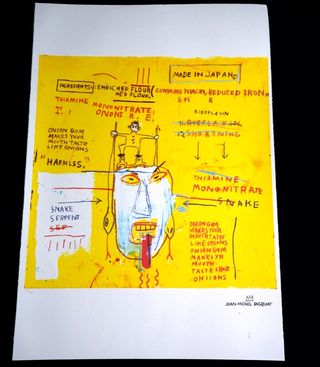 MADE IN JAPAN©
INGREDIENTS: ENRICHED FLOUR (CONTAINS NIACIN, REDUCED IRON
THIAMINE MONONITRATE,
RIBOFLAVIN
SHORTNING
ONION GUM
MAKES YOUR
MOUTH TASTE
LIKE ONIONS
"HARMLESS,"
THIAMINE
MONONITRATE
SNAKE
SERPENT
SEP
SNAKE
ONION GUM
MAKES YOUR
MOUTH TASTE
LIKE ONIONS
ONION GUM
MAKES YR
MOUTH
TASTE LIKE
ONIONS
JEAN MICHEL BASQUIAT